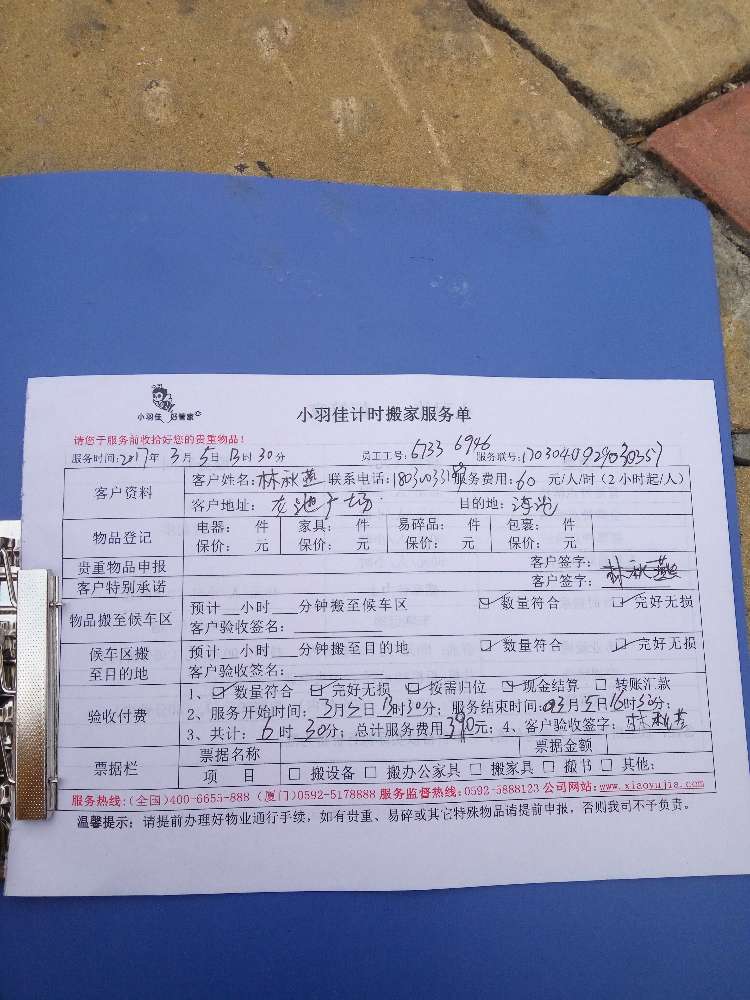 小羽佳 好管家
小羽佳计时搬家服务单
请您于服务前收拾好您的贵重物品！
服务时间：2017年 3月 5日 13时 30分 员工工号：6733 6946 服务联号：
客户资料 客户姓名：林秋燕 联系电话： 服务费用：60 元/人/时（2小时起/人）
客户地址： 广场 目的地：
物品登记 电器： 件 家具： 件 易碎品： 件 包裹： 件
保价： 元 保价： 元 保价： 元 保价： 元
贵重物品申报 客户签字：
客户特别承诺 客户签字：林秋燕
物品搬至候车区 预计__小时___分钟搬至候车区 ☑ 数量符合 ☑ 完好无损
客户验收签名：
候车区搬至目的地 预计__小时___分钟搬至目的地 ☑ 数量符合 ☑ 完好无损
客户验收签名：
验收付费 1、☑ 数量符合 ☑ 完好无损 ☑ 按需归位 ☑ 现金结算 □ 转账汇款
2、服务开始时间：3月5日13时30分；服务结束时间：3月5日16时30分；
3、共计：6时30分；总计服务费用390元；4、客户验收签字：林秋燕
票据栏 票据名称 票据金额
项 目 □ 搬设备 □ 搬办公家具 □ 搬家具 □ 搬书 □ 其他：
服务热线：(全国)400-6655-888 (厦门)0592-5178888 服务监督热线：0592-5888123 公司网站：www.xiaoyujia.com
温馨提示：请提前办理好物业通行手续，如有贵重、易碎或其它特殊物品请提前申报，否则我司不予负责。